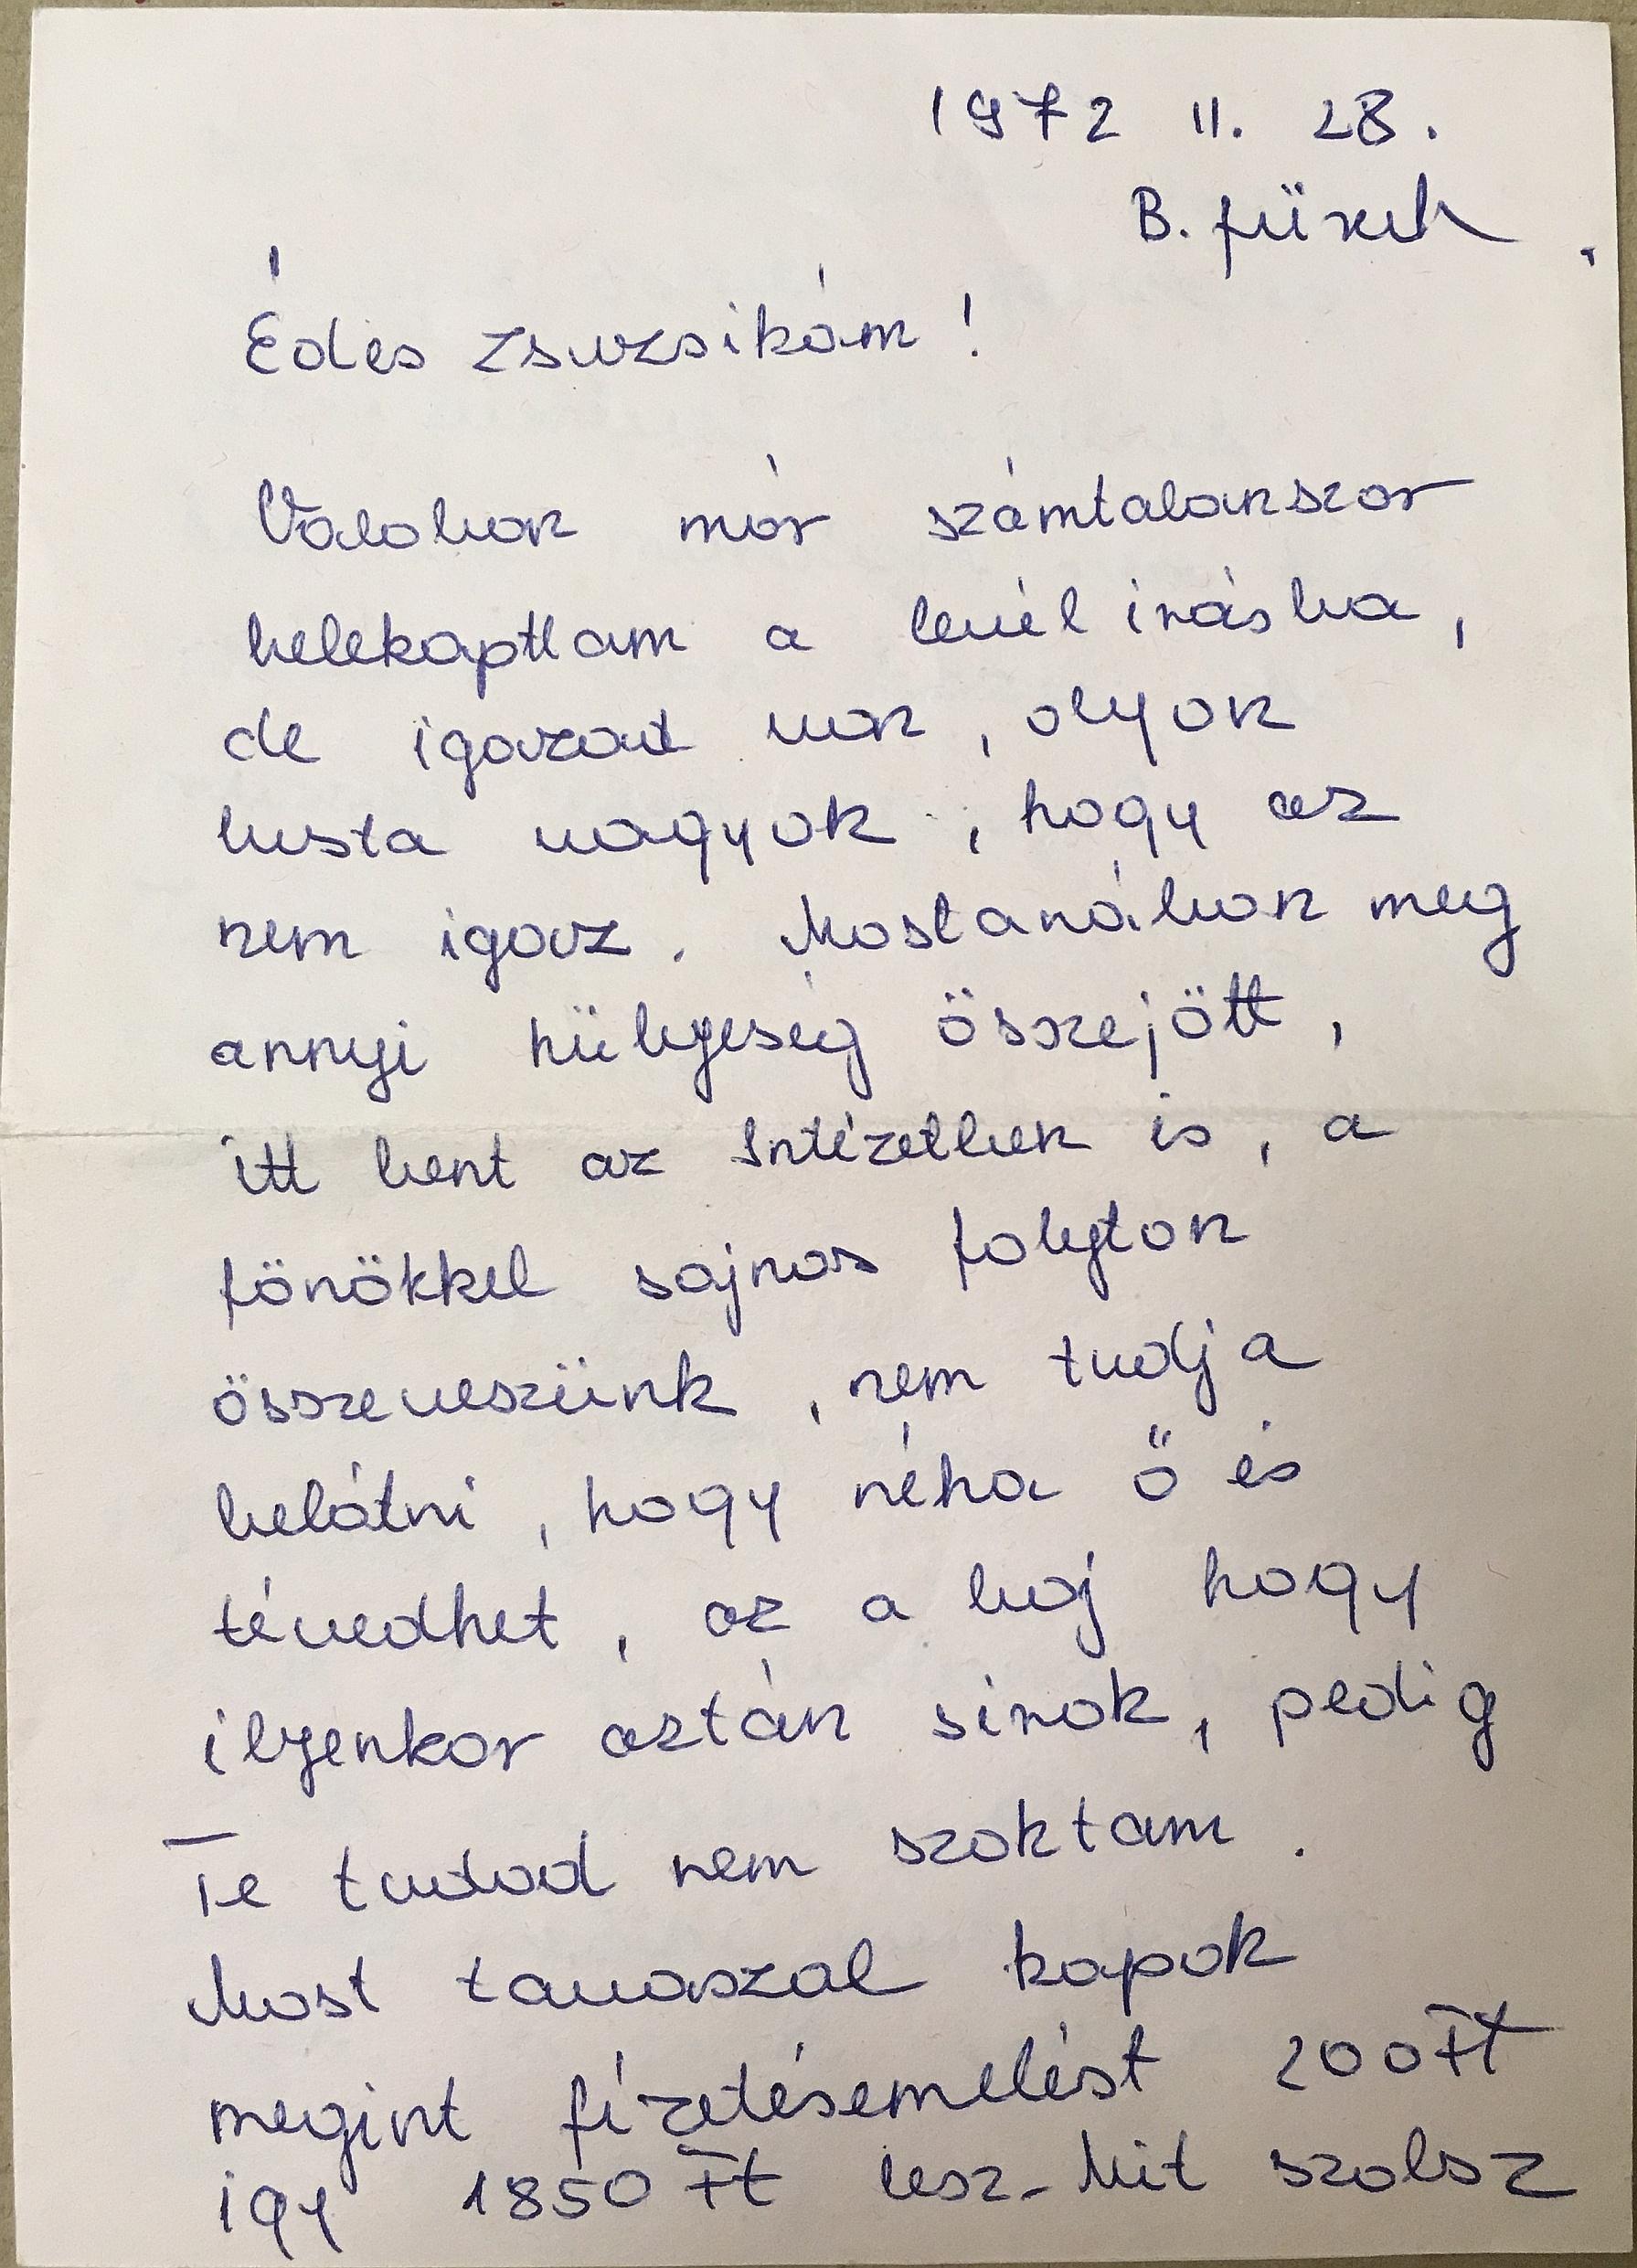 1972 II. 28.
B. füred
Édes Zsuzsikám!
Valoban már számtalanszor
belekapttam a levél irásba,
de igazad van, olyan
lusta vagyok, hogy az
nem igaz. Mostanában meg
annyi hülyeség összejött,
itt bent az Intézetben is, a
fönökkel sajnos folyton
összeveszünk, nem tudja
belátni, hogy néha ő is
tévedhet, az a baj hogy
ilyenkor aztán sirok, pedig
Te tudod nem szoktam.
Most tavaszal kapok
megint fizetésemelést 200 Ft
igy 1850 Ft lesz. Mit szolsz